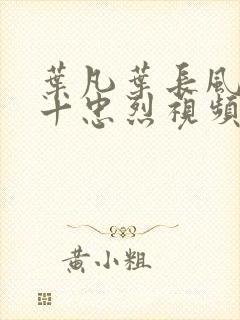 葉凡葉長風
十忠烈視頻
黃小粗